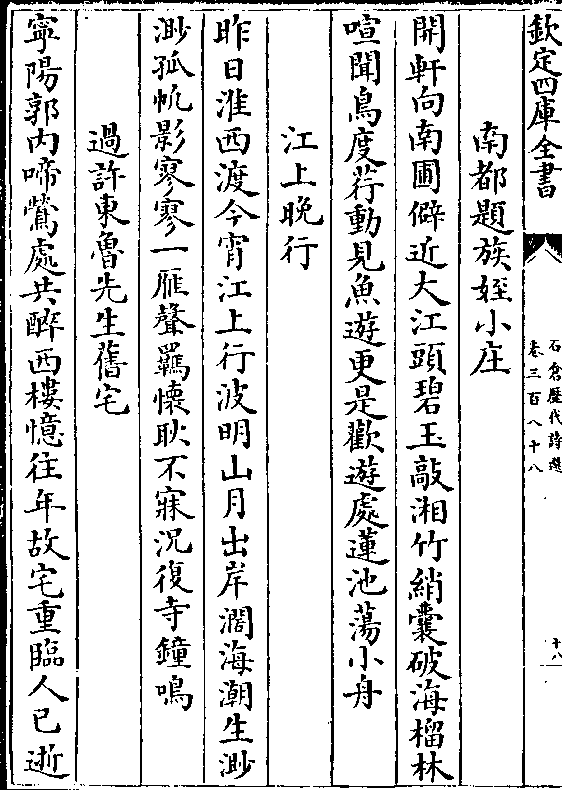 欽定四庫全書
石倉歷代詩選
卷三百八十八
十八
南都題族姪小庄
開軒向南圃僻近大江頭碧玉敲湘竹綃囊破海榴林
喧聞鳥度荇動見魚遊更是歡遊處蓮池蕩小舟
江上晚行
昨日淮西渡今宵江上行波明山月出岸濶海潮生渺
渺孤帆影寥寥一雁聲羈懷耿不寐況復寺鐘鳴
過許東魯先生舊宅
寧陽郭内啼鶯處共醉西樓憶往年故宅重臨人已逝